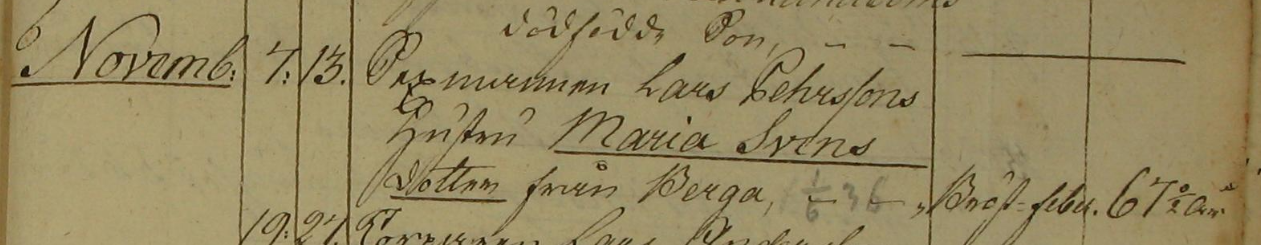 dödfödde Son, – –
Novemb: 7: 13. Sexmannen Lars Pehrssons
Hustru Maria Svens
dotter från Berga, – – „ Bröst-feber. 67 år
19: 27. Lars